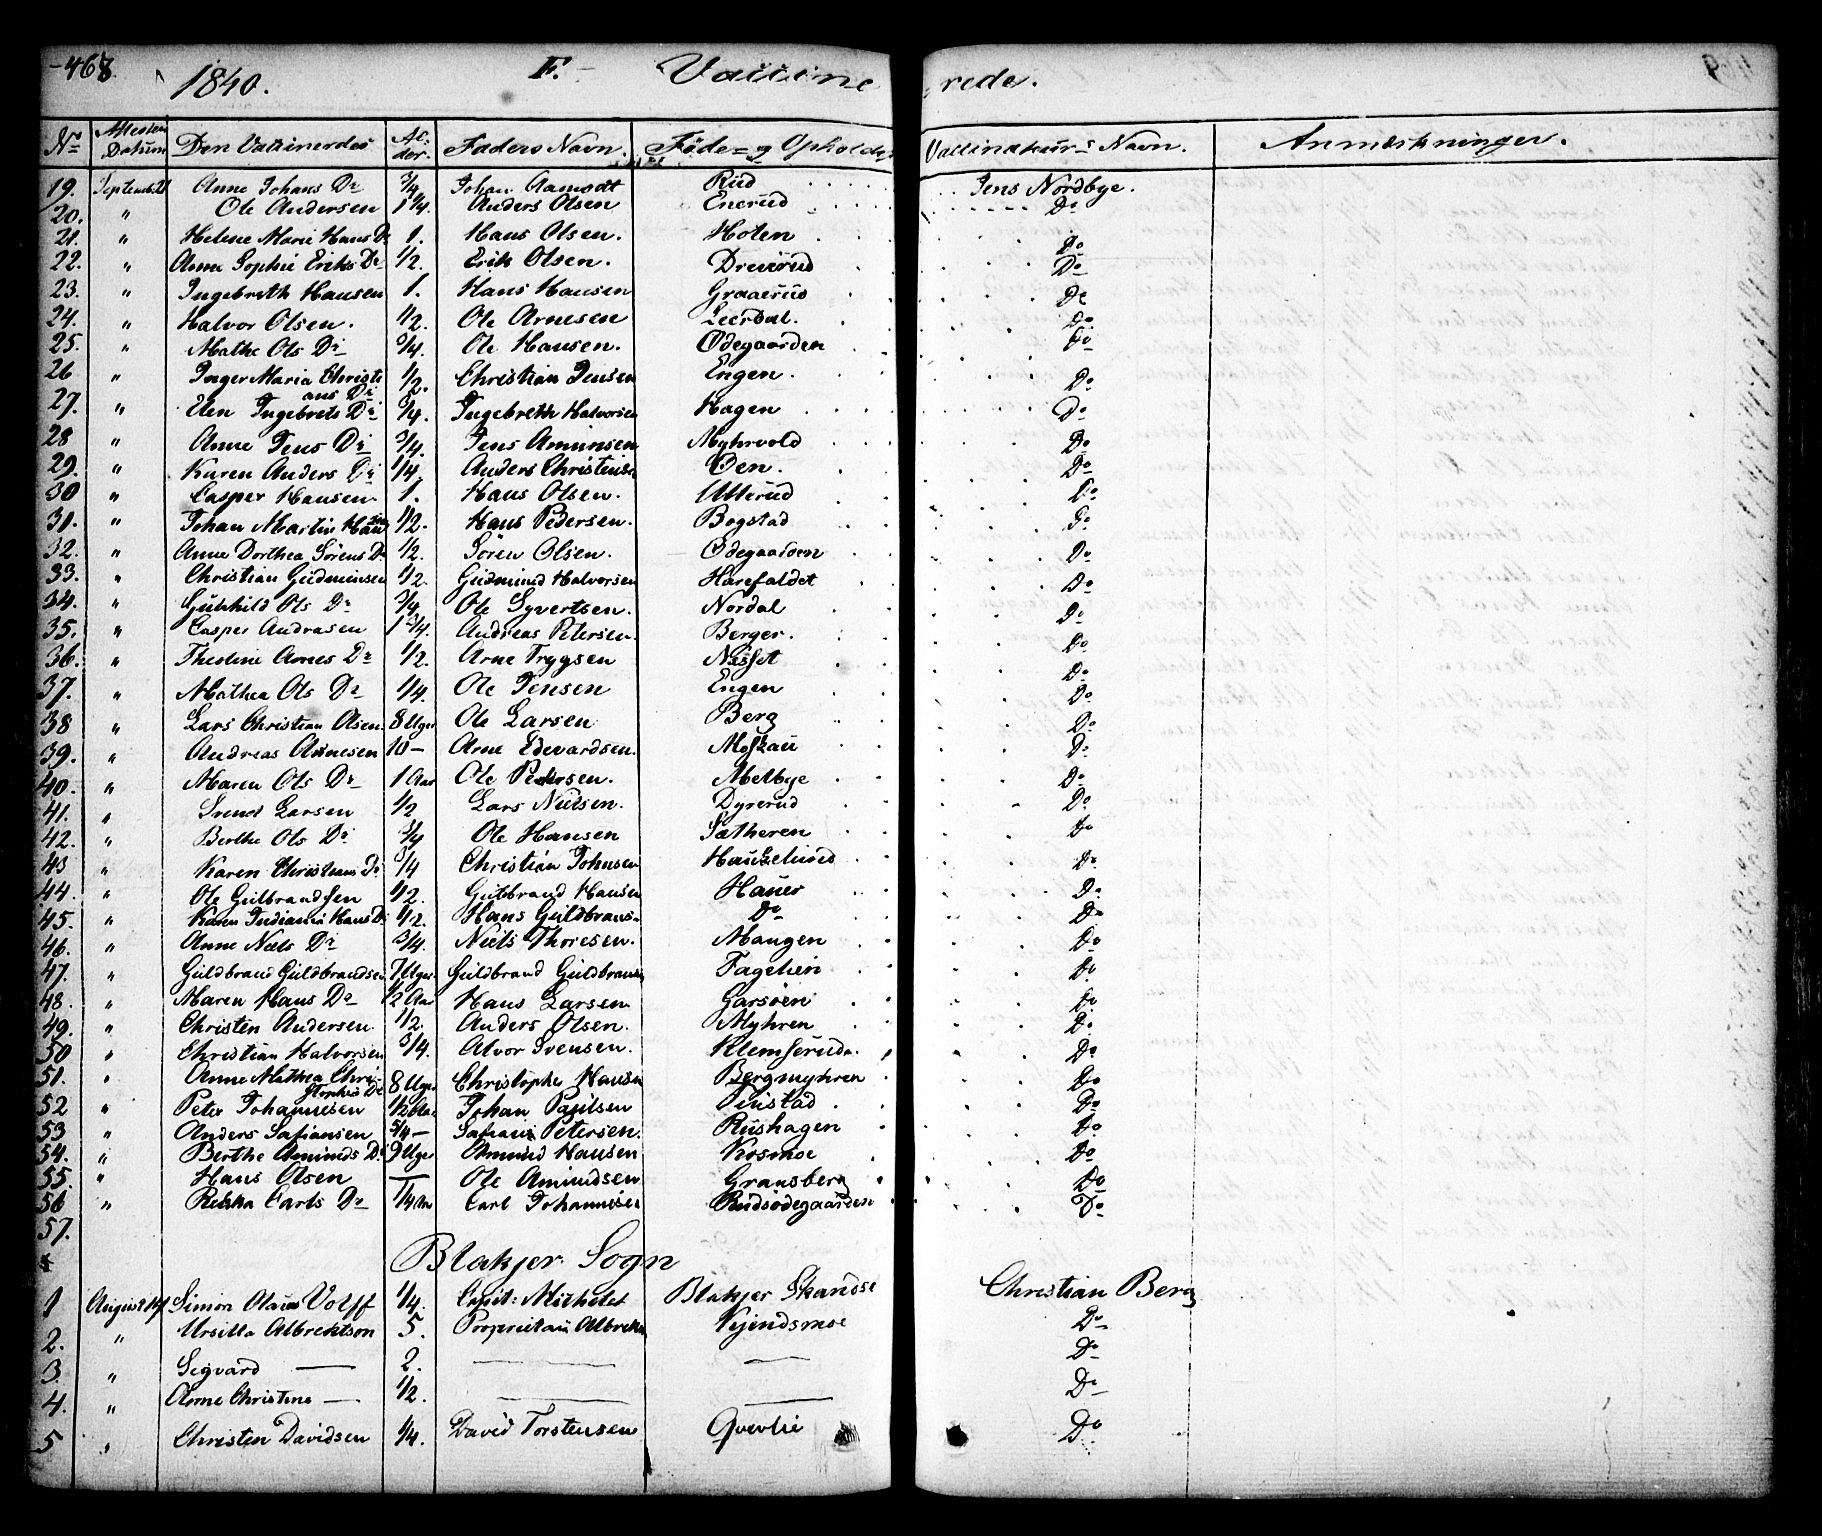 468. 1840. F. Vaccine rede.
No Attestens Datum Den Vaccineredes Alder. Faders Navn. Føde- og Opholds Vaccinateurs Navn. Anmærkninger.
19. September Anne Johans Dr 3/4 Johan Aamodt Rud Jens Nordbye.
20. " Ole Andersen 1 1/4. Anders Olsen Enerud Do
21. " Helene Marie Hans Dr 1. Hans Olsen. Holen Do
22. " Anne Sophie Eriks Dr 1/2. Erik Olsen. Drevrud Do
23. " Ingebreth Hansen 1. Hans Hansen Graaerud Do
24. " Halvor Olsen. 1/2. Ole Arnesen Leerdal. Do
25. " Mathe Ols Dr 3/4. Ole Hansen. Ødegaarden Do
26 " Inger Maria Christi ans Dr 1/2. Christian Jensen Engen. Do
27. " Elen Ingebrets Dr 3/4. Ingebreth Halvorsen Hagen Do
28 " Anne Jens Dr 3/4. Jens Amunsen Myhrvold Do
29. " Karen Anders Dr 1/4. Anders Christensen Øen. Do
30 " Casper Hansen 1. Hans Olsen. Ullerud Do
31. " Johan Martin Hansen 1/2. Hans Pedersen. Bogstad Do
32. " Anne Dorthea Sørens Dr 1/2. Søren Olsen. Ødegaarden Do
33. " Christian Gudmunsen 1/2. Gudmund Halvorsen Harefaldet Do
34. " Gunhild Ols Dr 3/4. Ole Syvertsen. Nordal Do
35. " Casper Andrasen 1 3/4. Andreas Petersen. Berger. Do
36. " Thestine Arnes Dr 1/2. Arne Trygsen Næsset Do
37. " Mathea Ols Dr 1/4. Ole Jensen Engen Do
38 " Lars Christian Olsen 8 Uger Ole Larsen Berg Do
39. " Andreas Arnesen 10 — Arne Edevardsen. Moskau Do
40. " Maren Ols Dr 1 Aar Ole Pedersen. Melbye Do
41. " Svend Larsen 1/2 Lars Nielsen. Dyrerud Do
42. " Berthe Ols Dr 3/4 Ole Hansen Sætheren Do
43 " Karen Christians Dr 3/4 Christian Johnsen Do
44. " Ole Gulbrandsen 1/2. Gulbrand Hansen Hauer Do
45. " Karen Indiane Hans Dr 1/2. Hans Guldbrans- Do Do
46. " Anne Niels Dr 3/4. Niels Thoresen. Mangen Do
47. " Guldbrand Guldbrandsen 7 Uger Guldbrand Guldbransen Fagelien Do
48. " Maren Hans Dr 1/2 Aar Hans Larsen Garsøen Do
49. " Christen Andersen 1/2. Anders Olsen. Myhren Do
50 " Christian Halvorsen 3/4. Alvor Svensen. Klemserud. Do
51. " Anne Mathea Chri- stophes Dr 8 Uger Christophe Hansen Bergmyhren Do
52 " Peter Johannesen 1/2 Aar Johan Paulsen Finstad Do
53 " Anders Safiansen 5/4 — Safian Petersen. Rushagen Do
54. " Berthe Amunds Dr 9 Uger Amund Hansen Kosmoe Do
55. " Hans Olsen — Ole Amundsen Gransberg Do
56 " Rebka Carls Dr 1/4 Aar Carl Johannesen Rudsødegaarden Do
57.
Blakjer Sogn
1 August Simon Olaus Volff 1/4. Capit: Michelet Blakjer Skandse Christian Berg
2. " Ursilla Albrektson 5. Proprietair Albrekts Kjendsmoe Do
3. " Segvard — 2. — — Do
4. " Anne Christine — 1/2. — — Do
5 " Christen Davidsen 1/4. David Torstensen Qverlie Do